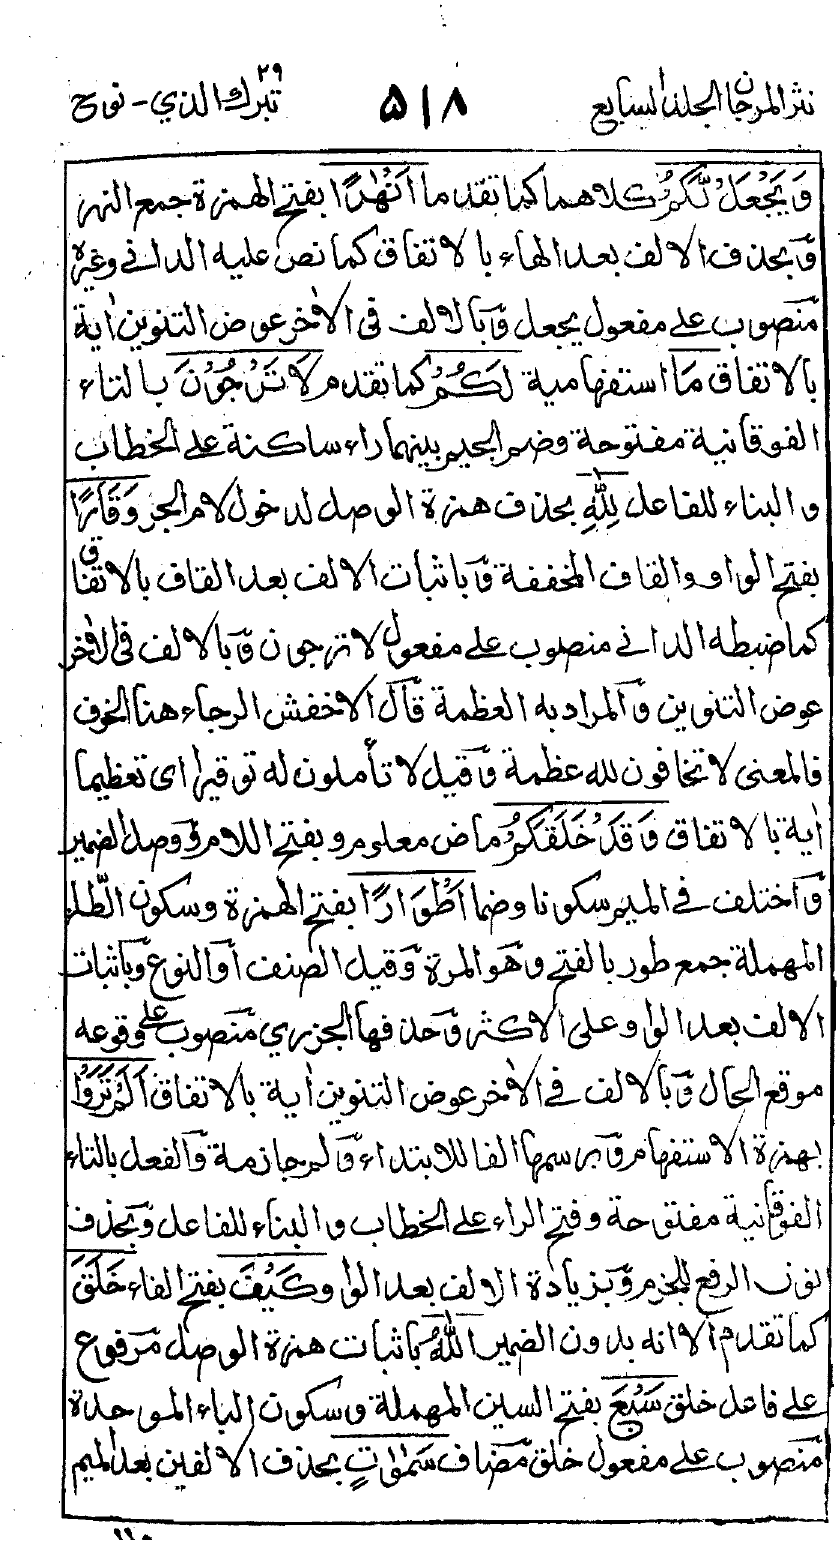 نثر المرجان الجلد السابع ٥١٨ تبرك الذي ٢٩ - نوح
وَيَجْعَلْ لَّكُمْ كلاهما كما تقدما اَنْهٰرًا بفتح الهمزة جمع النهر
وبحذف الالف بعد الهاء بالاتفاق كما نص عليه الداني وغيره
منصوب على مفعول يجعل وبالالف في الاٰخر عوض التنوين اٰية
بالاتفاق مَا استفهامية لَكُمْ كما تقدم لَا تَرْجُوْنَ بالتاء
الفوقانية مفتوحة وضم الجيم بينهما راء ساكنة على الخطاب
والبناء للفاعل لِلّٰهِ بحذف همزة الوصل لدخول لام الجر وَقَارًا
بفتح الواو والقاف المخففة وباثبات الالف بعد القاف بالاتفاق
كما ضبطه الداني منصوب على مفعول لا ترجون وبالالف في الاٰخر
عوض التنوين والمراد به العظمة قال الاخفش الرجاء هنا الخوف
فالمعنى لا تخافون لله عظمة وقيل لا تأملون له توقيرا اى تعظيما
اٰية بالاتفاق وَقَدْ خَلَقَكُمْ ماض معلوم وبفتح اللام ووصل الضمير
واختلف في الميم سكونا وضما اَطْوَارًا بفتح الهمزة وسكون الطاء
المهملة جمع طور بالفتح وهو المرة وقيل الصنف او النوع وباثبات
الالف بعد الواو على الاكثر وحذفها الجزري منصوب على وقوعه
موقع الحال وبالالف في الاٰخر عوض التنوين اٰية بالاتفاق اَلَمْ تَرَوْا
بهمزة الاستفهام وبرسمها الفا للابتداء ولم جازمة والفعل بالتاء
الفوقانية مفتوحة وفتح الراء على الخطاب والبناء للفاعل وبحذف
نون الرفع للجزم وبزيادة الالف بعد الواو كَيْفَ بفتح الفاء خَلَقَ
كما تقدم الا انه بدون الضمير اللّٰهُ باثبات همزة الوصل مرفوع
على فاعل خلق سَبْعَ بفتح السين المهملة وسكون الباء الموحدة
منصوب على مفعول خلق مضاف سَمٰوٰتٍ بحذف الالفين بعد الميم